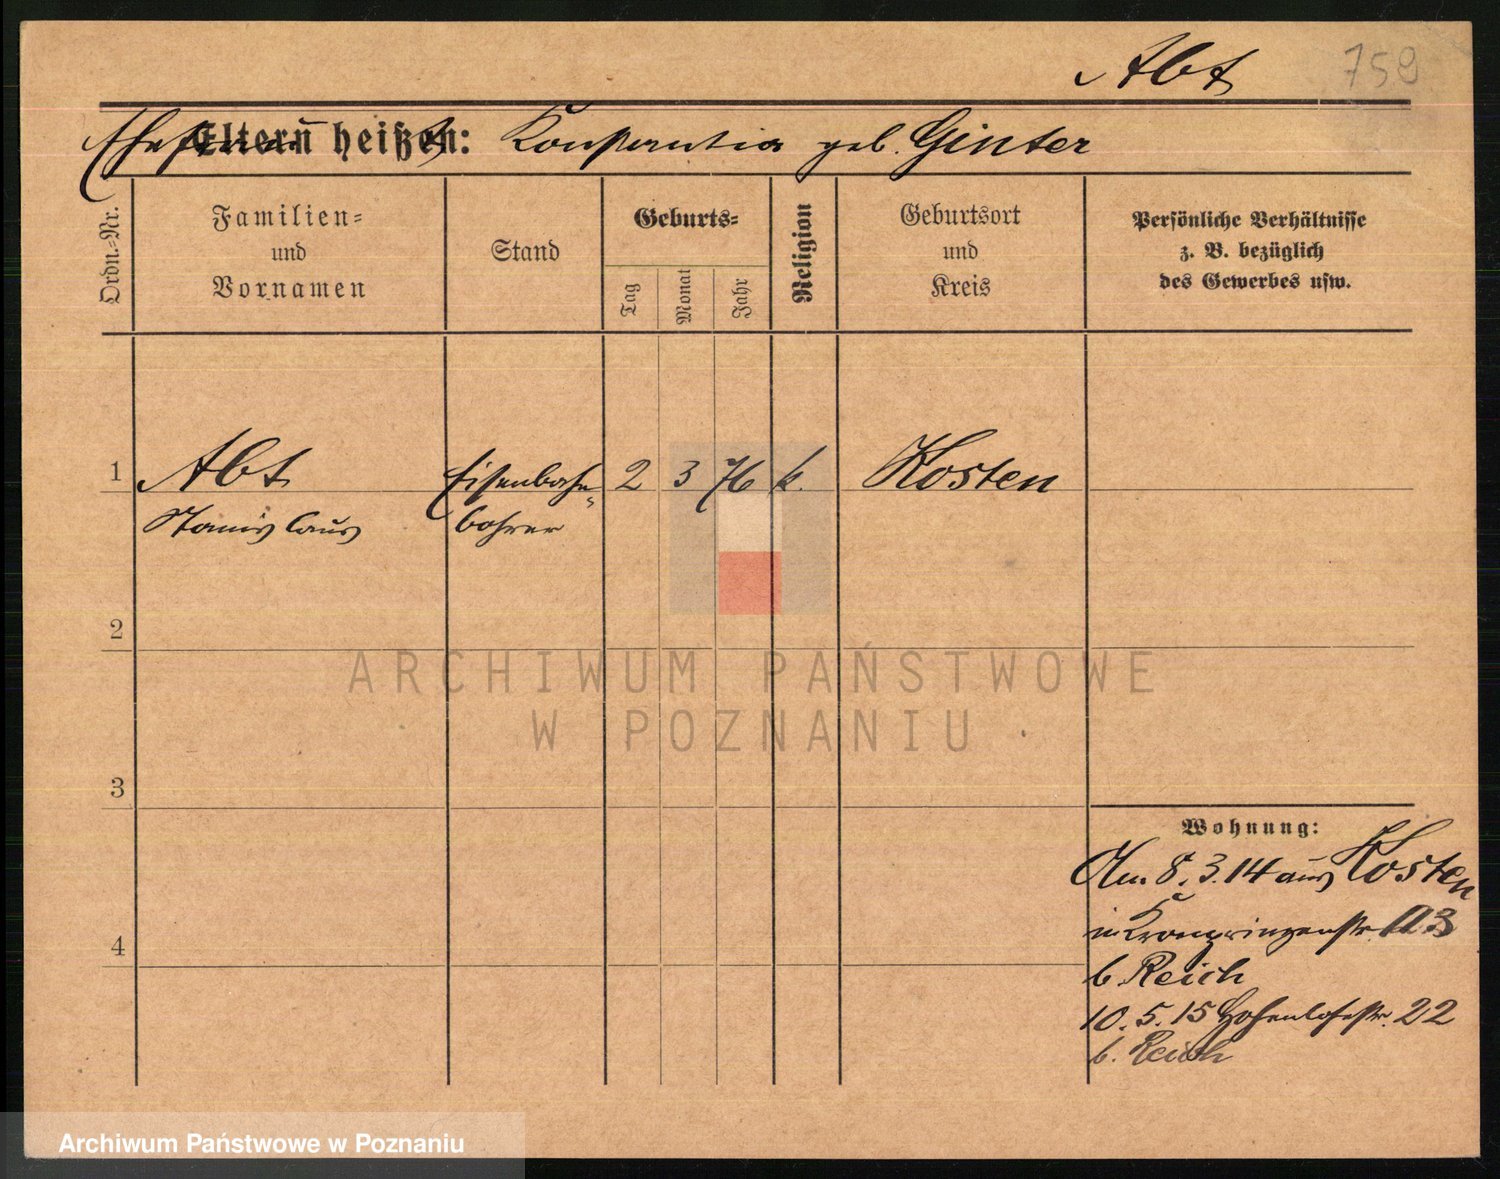 Abt 759
Ehefrau
Eltern heißen: Konstantia geb. Ginter
Ordn.-Nr.
Familien-
und
Vornamen
Stand
Geburts-
Tag
Monat
Jahr
Religion
Geburtsort
und
Kreis
Persönliche Verhältnisse
z. B. bezüglich
des Gewerbes usw.
1 Abt Eisenbahn- 2 3 76 k. Kosten
Stanislaus bohrer
2
ARCHIWUM PAŃSTWOWE
W POZNANIU
3
Wohnung:
Am 8. 3. 14 aus Kosten
in Kronprinzenstr. 113
4
b. Reich
10. 5. 15 Hohenlohestr. 22
b. Reich
Archiwum Państwowe w Poznaniu